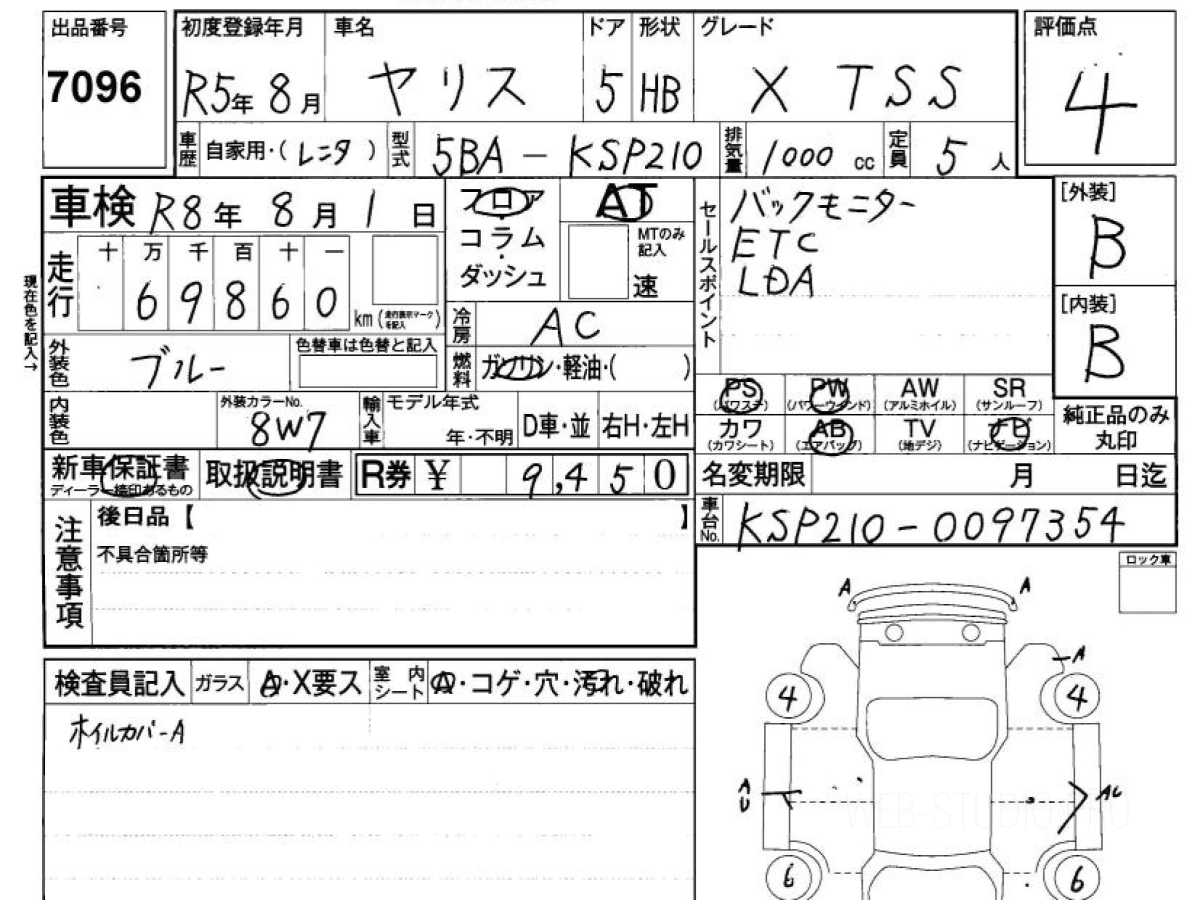 出品番号
7096
初度登録年月 車名 ドア 形状 グレード
R5年 8月 ヤリス 5 HB X TSS
車歴 自家用・(レンタ) 型式 5BA-KSP210 排気量 1000 cc 定員 5人
評価点
4
車検 R8年 8月 1日
フロア
コラム
ダッシュ
AT
MTのみ記入
速
セールスポイント
バックモニター
ETC
LDA
[外装]
B
[内装]
B
現在色を記入→
走行 十 万 千 百 十 一
6 9 8 6 0 km (走行表示マークを記入)
冷房 AC
外装色 ブルー 色替車は色替と記入
燃料 ガソリン・軽油・( )
内装色 外装カラーNo. 8W7
輸入車 モデル年式 年・不明 D車・並 右H・左H
PS (パワステ) PW (パワーウインド) AW (アルミホイル) SR (サンルーフ)
カワ (カワシート) AB (エアバッグ) TV (地デジ) ナビ (ナビゲーション)
純正品のみ丸印
新車保証書 ディーラー捺印あるもの 取扱説明書 R券 ¥ 9,450
名変期限 月 日迄
車台No. KSP210-0097354
注意事項
後日品【 】
不具合箇所等
ロック車
検査員記入 ガラス A・X要ス 室内シート A・コゲ・穴・汚れ・破れ
ホイルカバーA
A A
A
4 4
A
U
AU
6 6
WEB-STUDIO.PRO